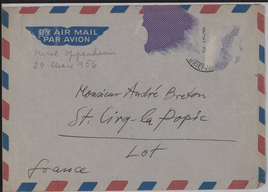 BY AIR MAIL
PAR AVION
Meret Oppenheim
29 Mars 1956
Monsieur André Breton
St. Cirq-la-Popie
Lot
France